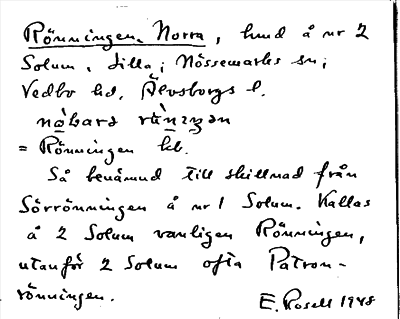 Rönningen, Norra, hmd å nr 2
Solum, Lilla; Nössemarks sn;
Vedbo hd, Älvsborgs l.
= Rönningen hd.
Så benämnd till skillnad från
Sörrönningen å nr 1 Solum. Kallas
å 2 Solum vanligen Rönningen,
utanför 2 Solum ofta Patron-
rönningen.
E. Rosell 1948